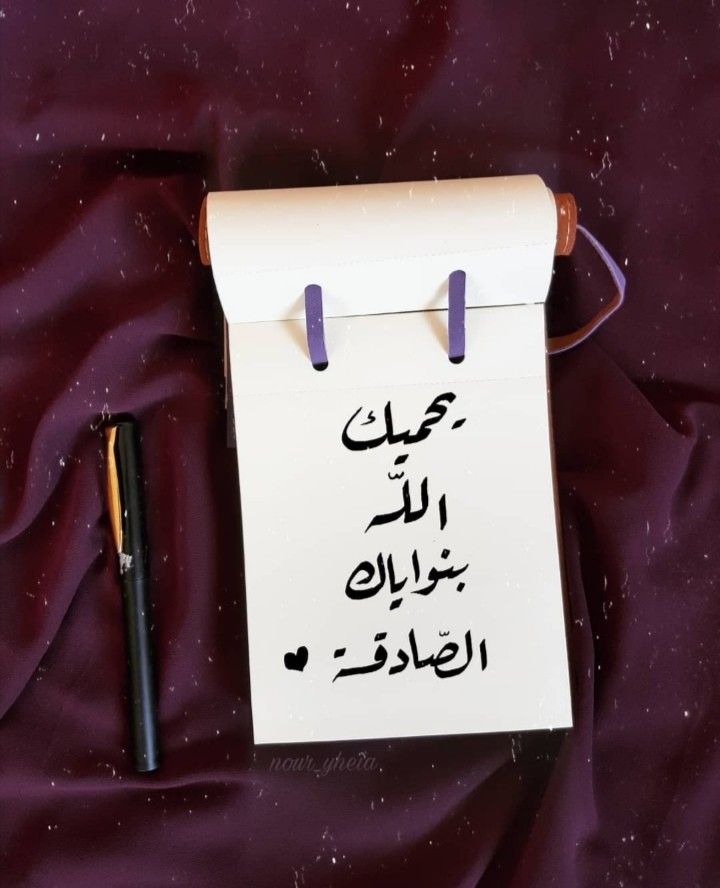 يحميك
اللّه
بنواياك
الصّادقة ♥